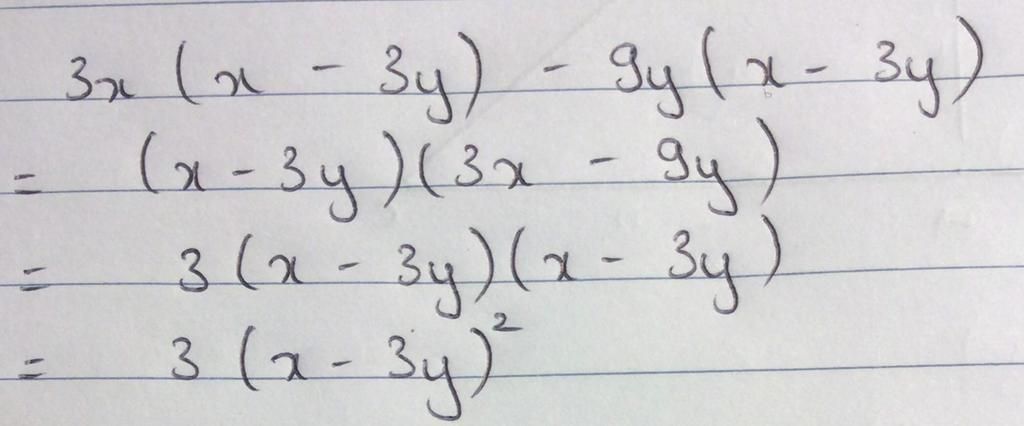 3x (x - 3y) - 9y (x - 3y)
= (x - 3y)(3x - 9y)
= 3 (x - 3y)(x - 3y)
= 3 (x - 3y)²